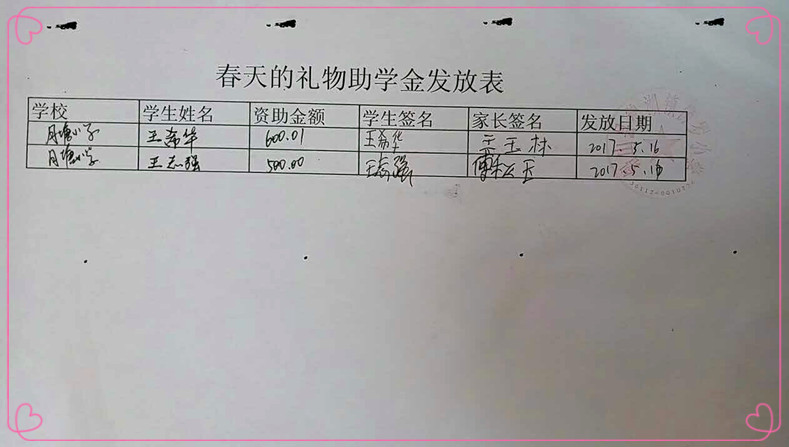 春天的礼物助学金发放表
学校 学生姓名 资助金额 学生签名 家长签名 发放日期
月塘小学 王希华 600.01 王希华 王林 2017.5.16
月塘小学 王志强 500.00 王志强 2017.5.16